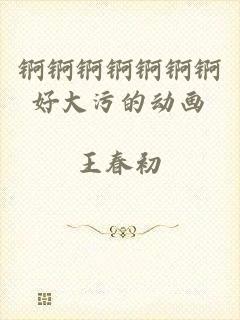 锕锕锕锕锕锕锕
好大污的动画
王春初